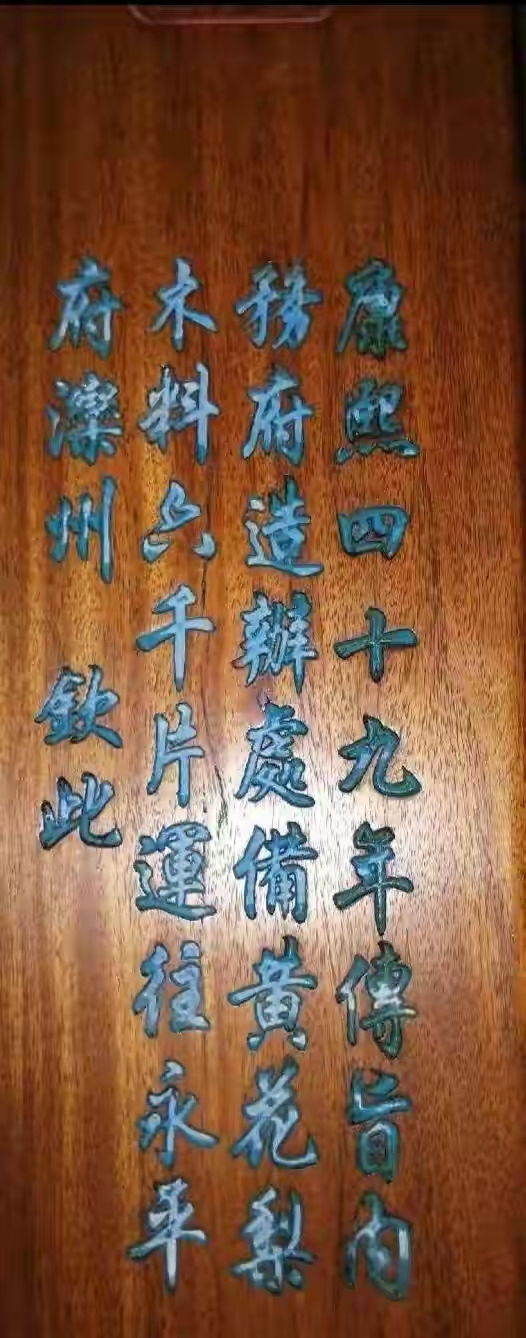 康熙四十九年傳旨内
務府造辦處備黃花梨
木料六千片運往永平
府灤州 欽此